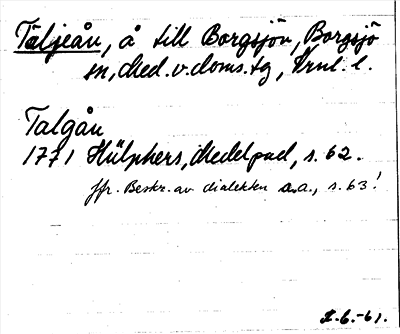 Täljeån, å till Borgsjön, Borgsjö
sn, Med. v. doms. tg, Vrnl. l.
Talgån
1771 Hülphers, Medelpad, s. 62.
jfr. Beskr. av dialekten a.a., s. 63!
2.6.-61.